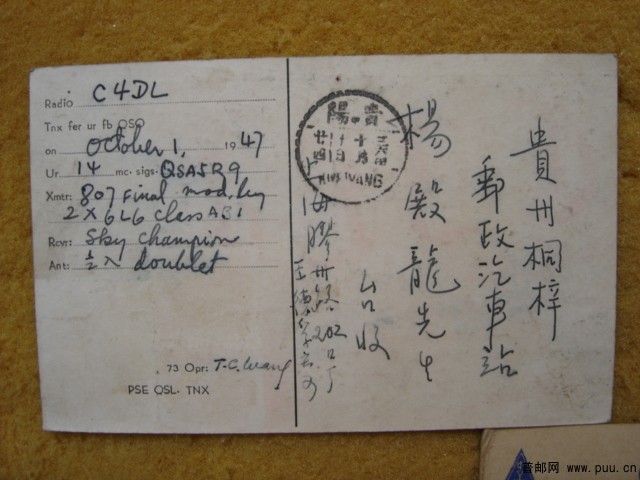 Radio C4DL
Tnx fer ur fb QSO
on October 1, 1947
Ur 14 mc. sigs. QSA5R9
Xmtr: 807 Final mod. by
2 X 6L6 Class AB1
Rcvr: Sky Champion
Ant: ½ λ doublet
73 Opr: T.C. Wang
PSE QSL. TNX
貴州桐梓
郵政汽車站
楊殿龍先生
台收
上海膠州路202
貴陽
KWEIYANG
普邮网 www.puu.cn